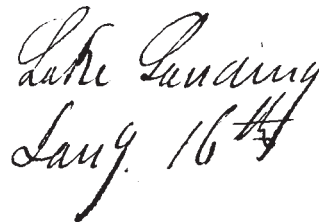 Lake Landing
Jany. 16th